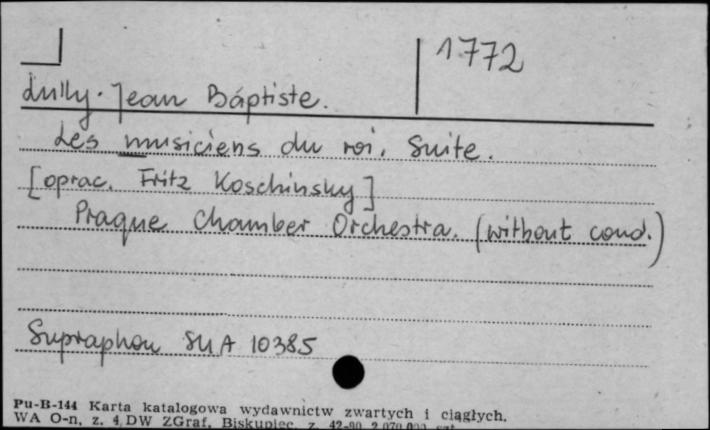 1772
Lully. Jean Baptiste.
Les musiciens du roi. Suite.
[oprac. Fritz Koschinsky]
Prague Chamber Orchestra. (without cond.)
Supraphon SUA 10385
Pu-B-144 Karta katalogowa wydawnictw zwartych i ciągłych.
WA O-n, z. 4 DW ZGraf. Biskupiec, z. 42-90 2.070.000